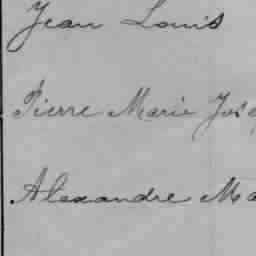 Jean Louis
Pierre Marie Jos
Alexandre Ma